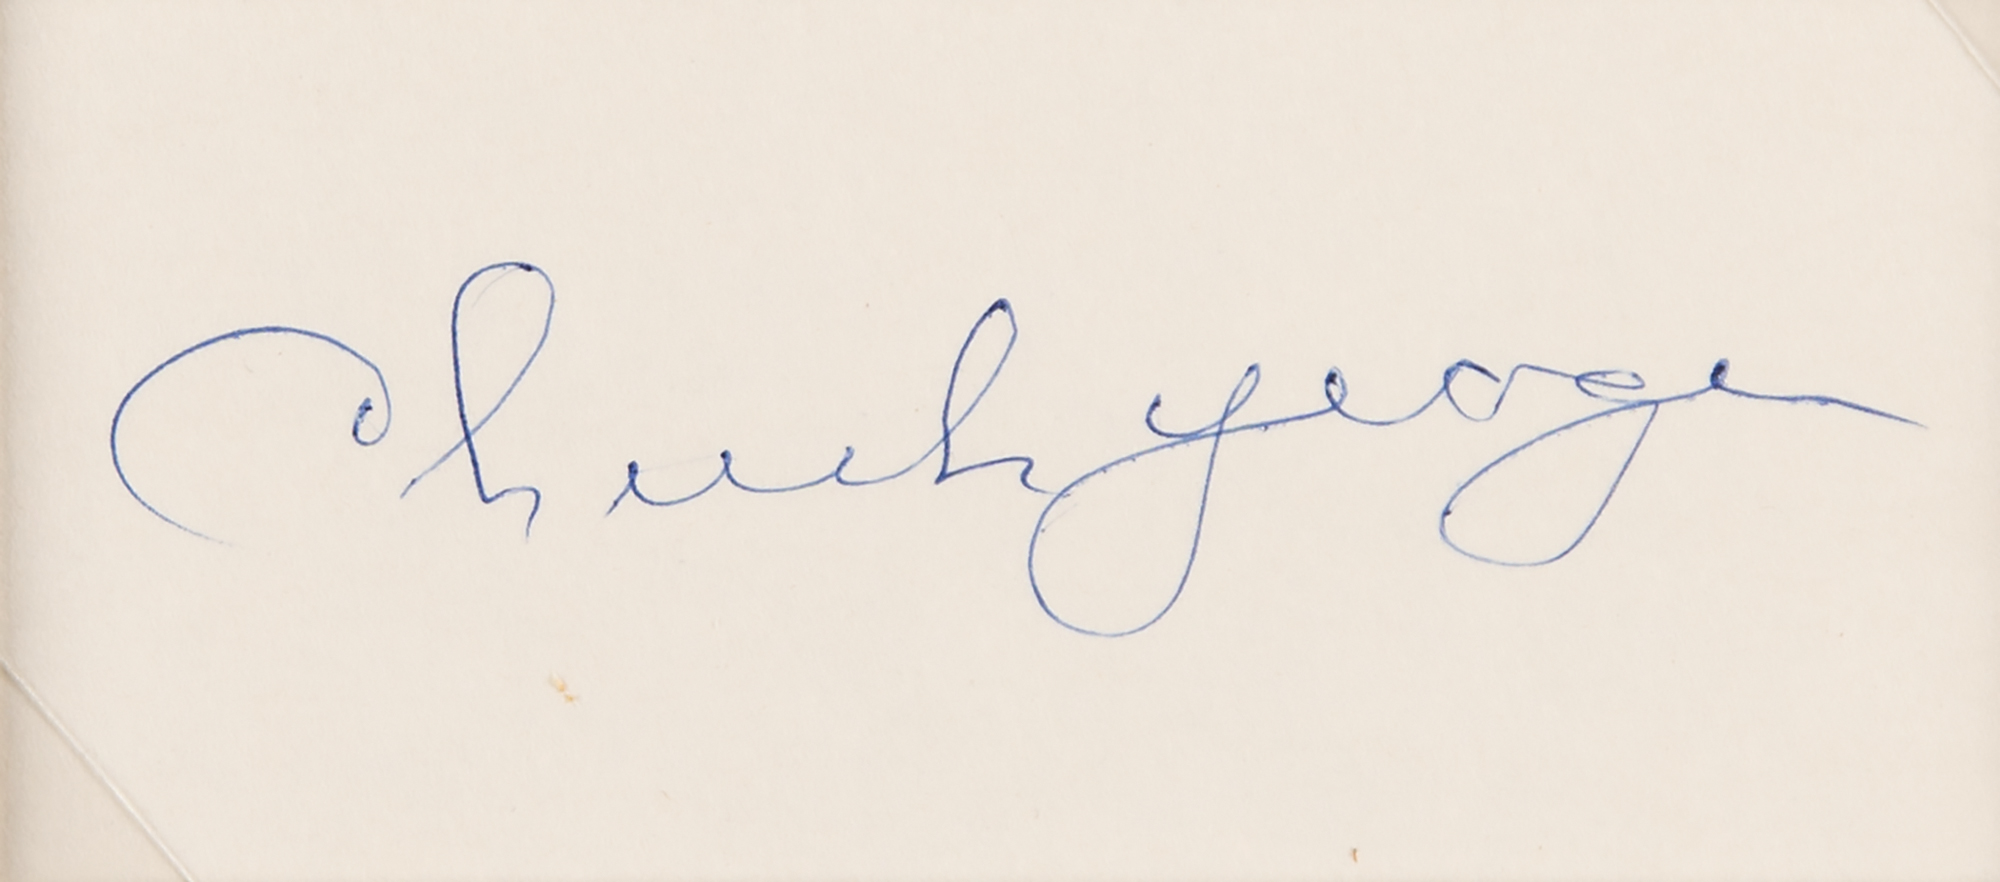 Chuck Yeager